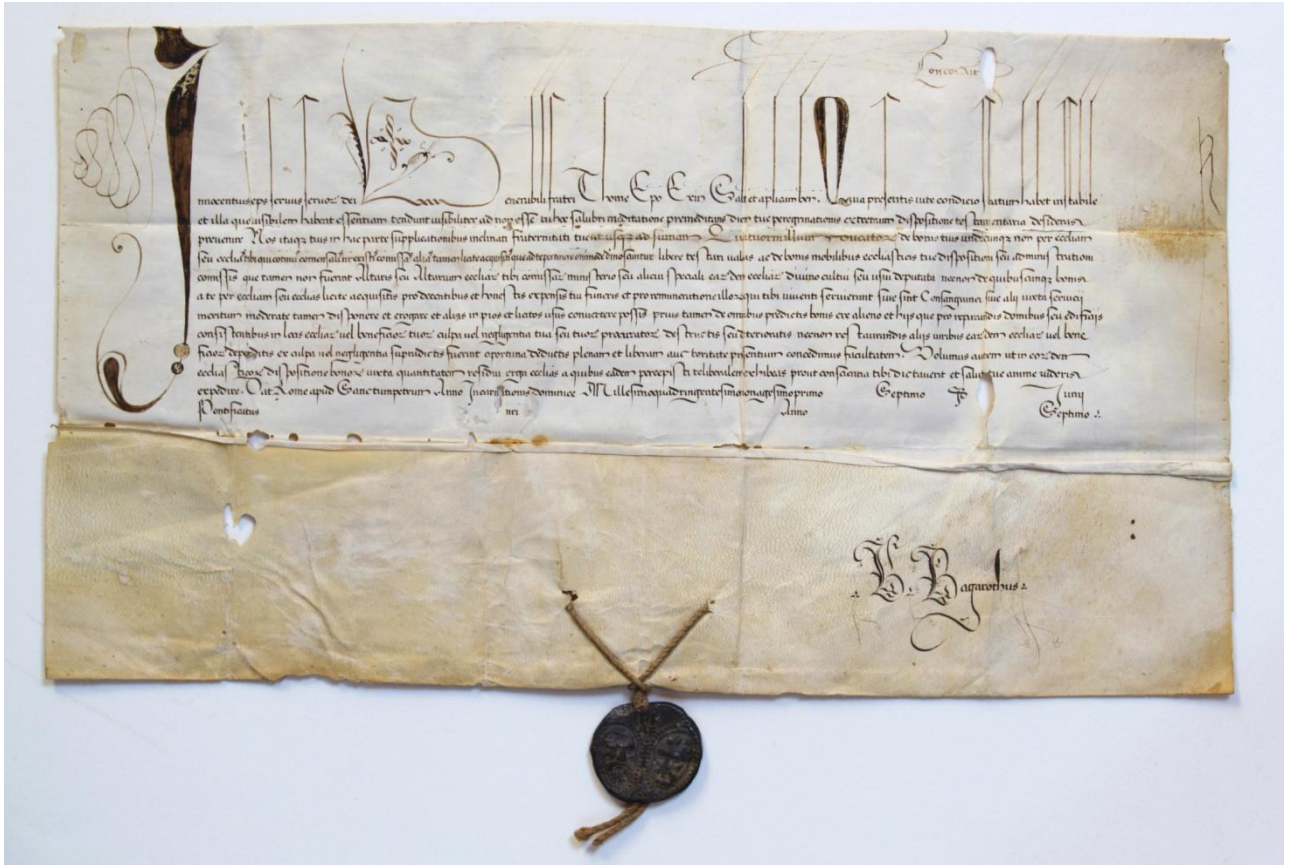 Concordat
nnocentius eps servus servoꝝ dei enerabili fratri Thome Epo Salt et aplicam ben. Quia presentis vite condicio statum habet instabilem
et illa que visibilem habent essentiam tendunt invisibiliter ad non esse tu hec salubri meditatione premeditans diem tue peregrinationis extremum dispositione testamentaria desideras
prevenire Nos itaqꝫ tuis in hac parte supplicationibus inclinati fraternitati tue usqꝫ ad summam Quatuormilium ducatoꝝ de bonis tuis undecunqꝫ non per ecclesiam
seu ecclesias libere testari valeas ac de bonis mobilibus ecclesiasticis tue dispositioni seu administrationi
comissis que tamen non fuerint Altaris seu Altarium ecclesiaꝝ tibi comissaꝝ ministerio seu alicui speciali earundem ecclesiaꝝ divino cultui seu usui deputata necnon de quibuscunqꝫ bonis
a te per ecclesiam seu ecclesias licite acquisitis pro decentibus et honestis expensis tui funeris et pro remuneratione illoꝝ qui tibi viventi servierunt sive sint Consanguinei sive alij iuxta servicij
meritum moderate tamen disponere et erogare et alias in pios et licitos usus convertere possis prius tamen de omnibus predictis bonis ere alieno et hiis que pro reparandis domibus seu edificiis
consistentibus in locis ecclesiaꝝ vel beneficioꝝ tuoꝝ culpa vel negligentia tua seu tuoꝝ procuratoꝝ destructis seu deterioratis necnon restaurandis alijs iuribus earundem ecclesiaꝝ vel bene
ficioꝝ deperditis ex culpa vel negligentia supradictis fuerint oportuna deductis plenam et liberam auctoritate presentium concedimus facultatem. Volumus autem ut in eoꝝdem
ecclesiasticoꝝ dispositione bonoꝝ iuxta quantitatem residui erga ecclesias a quibus eadem percepisti te liberalem exhibeas prout conscientia tibi dictaverit et saluti tue anime videris
expedire. Dat Rome apud Sanctumpetrum Anno Incarnationis dominice Millesimoquadringentesimononagesimoprimo Septimo Junij
Pontificatus nri Anno Septimo
B. Bagarothus